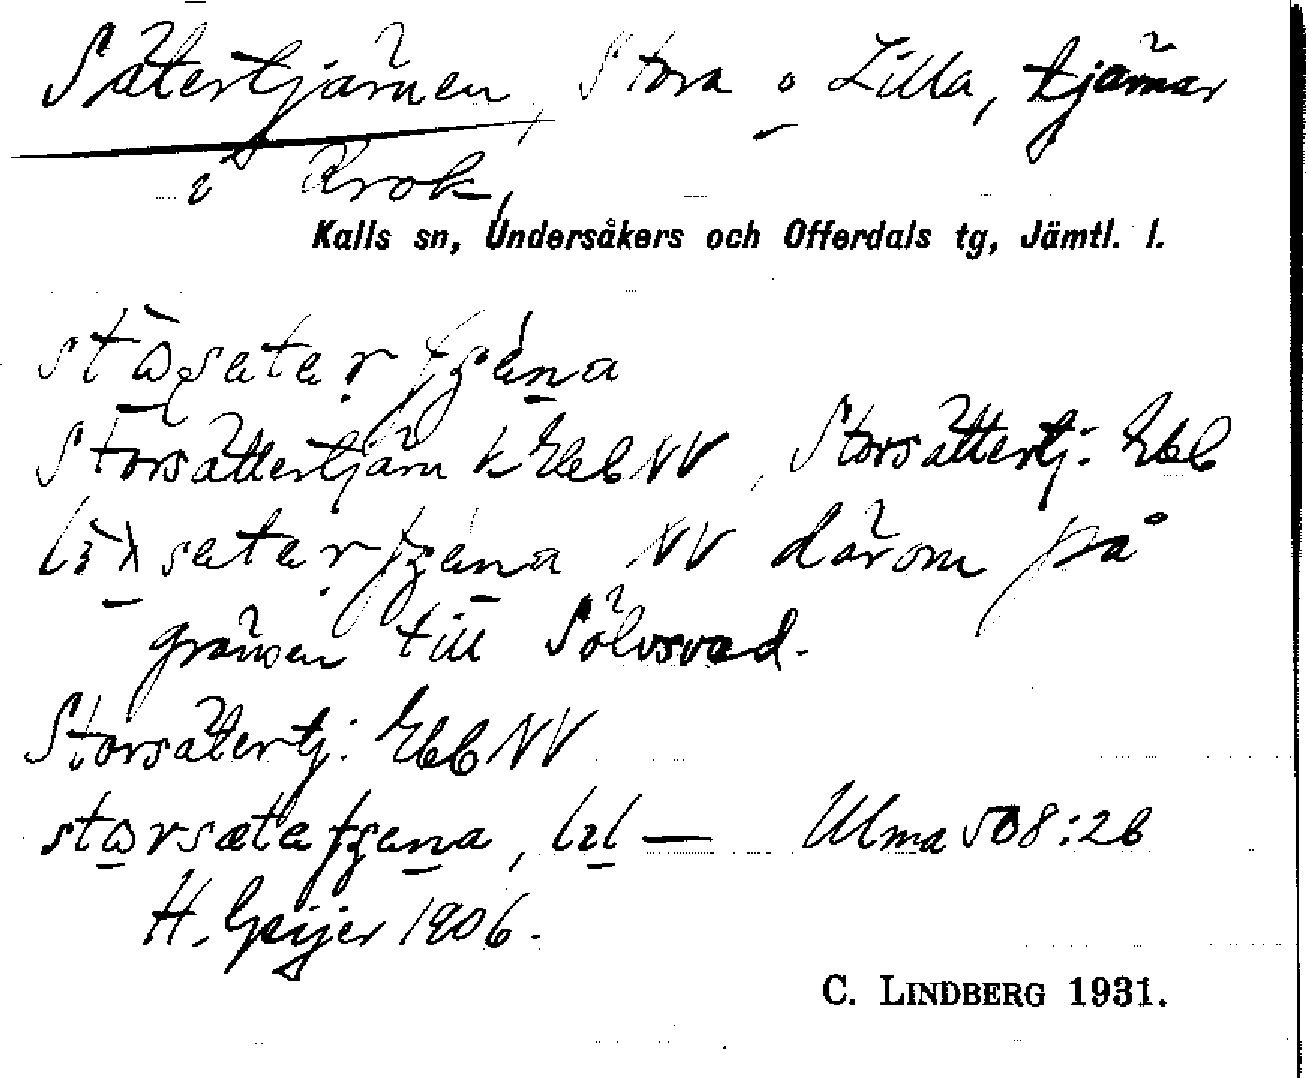 Sätertjärnen, Stora o Lilla, tjärnar
i Krok,
Kalls sn, Undersåkers och Offerdals tg, Jämtl. l.
Storsättertjärn k EbbNV, Storsättertj: Ebb
NV därom på
gränsen till Sölvsved.
Storsätertj: Ebb NV
storsæteʃɛna, lil — Ulma 508:26
H. Geijer 1906.
C. LINDBERG 1931.